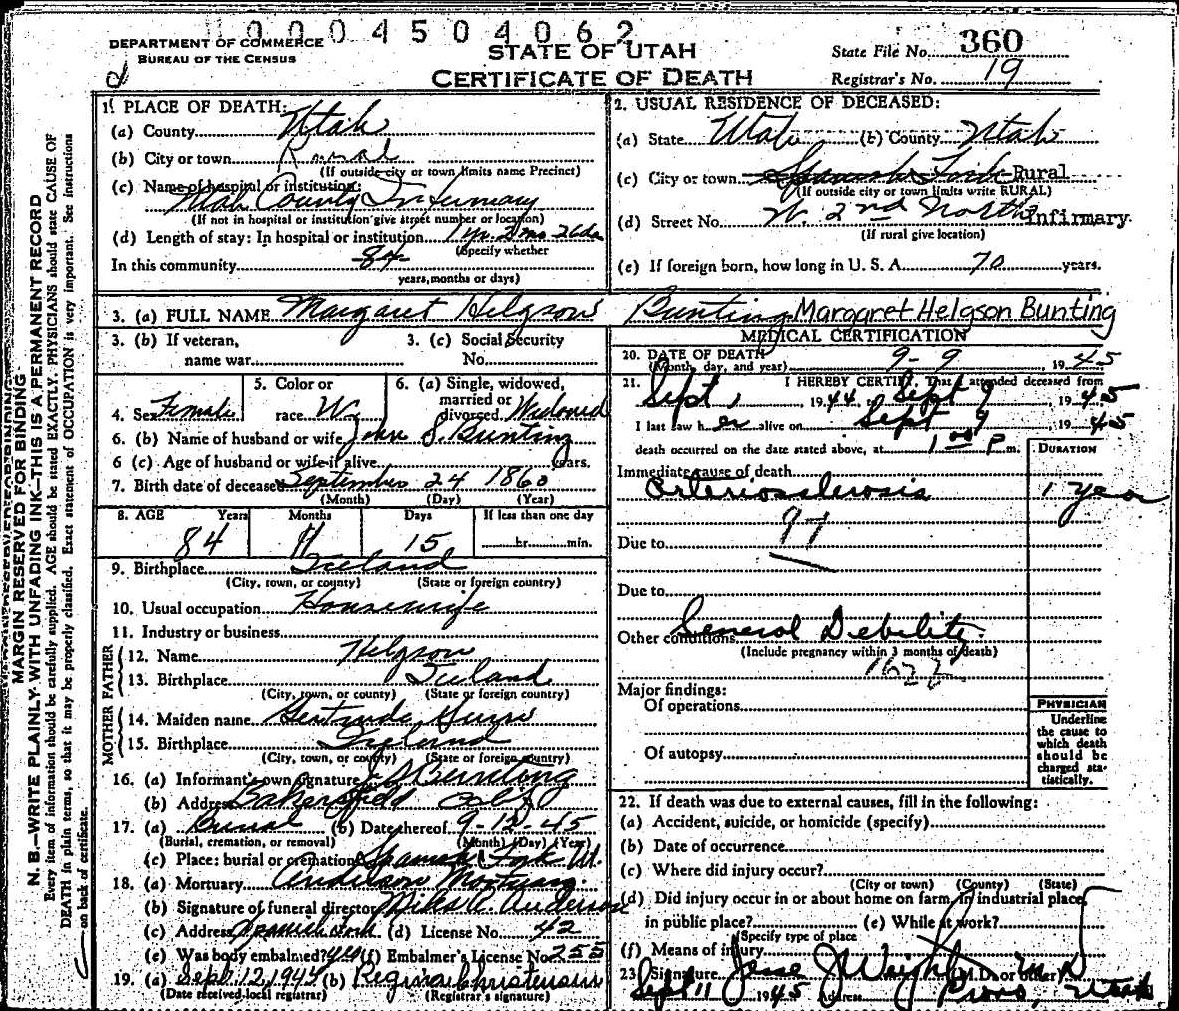 1 0 0 0 4 5 0 4 0 6 2
DEPARTMENT OF COMMERCE
BUREAU OF THE CENSUS
STATE OF UTAH
CERTIFICATE OF DEATH
State File No. 360
Registrar's No. 19
MARGIN RESERVED FOR BINDING
N. B.—WRITE PLAINLY WITH UNFADING INK—THIS IS A PERMANENT RECORD
Every item of information should be carefully supplied. AGE should be stated EXACTLY. PHYSICIANS should state CAUSE OF
DEATH in plain terms, so that it may be properly classified. Exact statement of OCCUPATION is very important. See instructions
on back of certificate.
1. PLACE OF DEATH:
(a) County Utah
(b) City or town Rural
(If outside city or town limits name Precinct)
(c) Name of hospital or institution:
Utah County Infirmary
(If not in hospital or institution give street number or location)
(d) Length of stay: In hospital or institution 1 yr. 2 mo
(Specify whether
In this community 84
years, months or days)
2. USUAL RESIDENCE OF DECEASED:
(a) State Utah (b) County Utah
(c) City or town Spanish Fork Rural
(If outside city or town limits write RURAL)
(d) Street No. W. 2nd North Infirmary
(If rural give location)
(e) If foreign born, how long in U. S. A. 70 years.
3. (a) FULL NAME Margaret Helgson Bunting Margaret Helgson Bunting
3. (b) If veteran,
name war
3. (c) Social Security
No.
4. Sex Female
5. Color or
race W.
6. (a) Single, widowed,
married or
divorced Widowed
6. (b) Name of husband or wife John S. Bunting
6 (c) Age of husband or wife if alive years.
7. Birth date of deceased September 24 1860
(Month) (Day) (Year)
8. AGE Years Months Days If less than one day
84 11 15 hr. min.
9. Birthplace Iceland
(City, town, or county) (State or foreign country)
10. Usual occupation Housewife
11. Industry or business
FATHER
12. Name Helgson
13. Birthplace Iceland
(City, town, or county) (State or foreign country)
MOTHER
14. Maiden name Gertrude
15. Birthplace Iceland
(City, town, or county) (State or foreign country)
16. (a) Informant's own signature J S Bunting
(b) Address Bakersfield Calif
17. (a) Burial (b) Date thereof 9-12-45
(Burial, cremation, or removal) (Month) (Day) (Year)
(c) Place: burial or cremation Spanish Fork Ut.
18. (a) Mortuary Anderson Mortuary.
(b) Signature of funeral director Miles A. Anderson
(c) Address Spanish Fork (d) License No. 42
(e) Was body embalmed? yes (f) Embalmer's License No. 255
19. (a) Sept. 12, 1944 (b) Regina Christensen
(Date received local registrar) (Registrar's signature)
MEDICAL CERTIFICATION
20. DATE OF DEATH
(Month, day, and year) 9-9 1945
21. I HEREBY CERTIFY, That I attended deceased from
Sept 1, 1944 to Sept 9, 1945
I last saw her alive on Sept 9 1945
death occurred on the date stated above, at 1 00 P m.
DURATION
Immediate cause of death
Arteriosclerosis 1 year
97
Due to
Due to
Other conditions General Debility.
(Include pregnancy within 3 months of death)
162
Major findings:
Of operations
Of autopsy
PHYSICIAN
Underline
the cause to
which death
should be
charged sta-
tistically.
22. If death was due to external causes, fill in the following:
(a) Accident, suicide, or homicide (specify)
(b) Date of occurrence
(c) Where did injury occur?
(City or town) (County) (State)
(d) Did injury occur in or about home on farm, in industrial place,
in public place? (e) While at work?
(Specify type of place
(f) Means of injury
23. Signature Jesse J Weight M. D. or other M D
Sept 11 1945 Address Provo, Utah